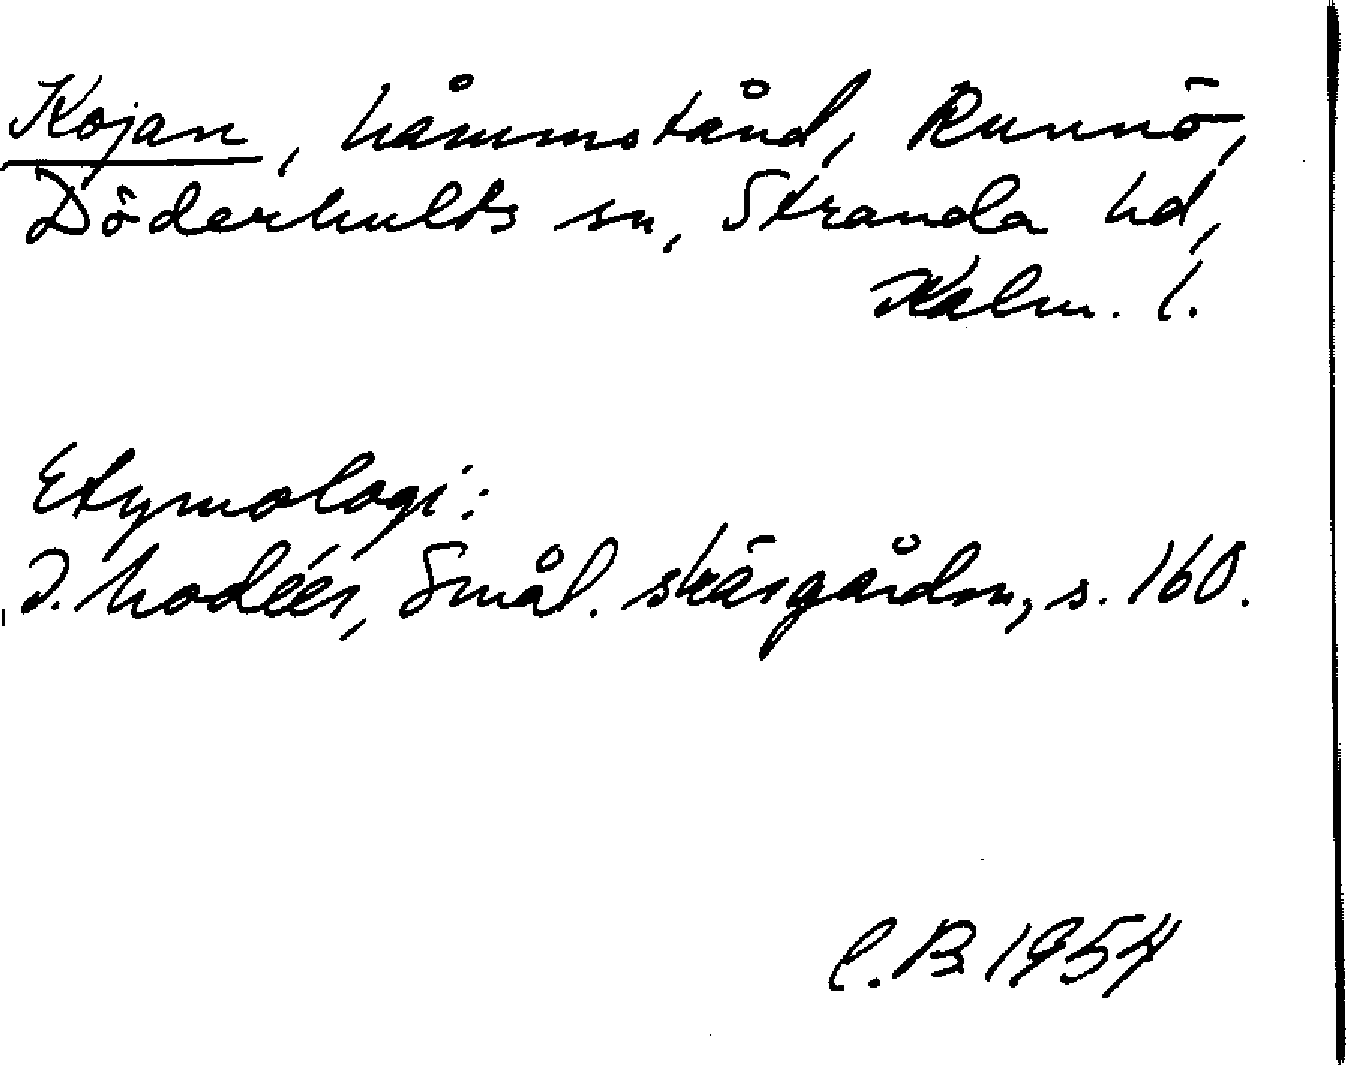 Kojan, håmmstånd, Runnö,
Döderhults sn, Stranda hd,
Kalm. l.
Etymologi:
I. Modéer, Smål. skärgårdsn, s. 160.
C. B 1954